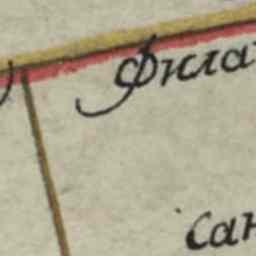 Фила
сан